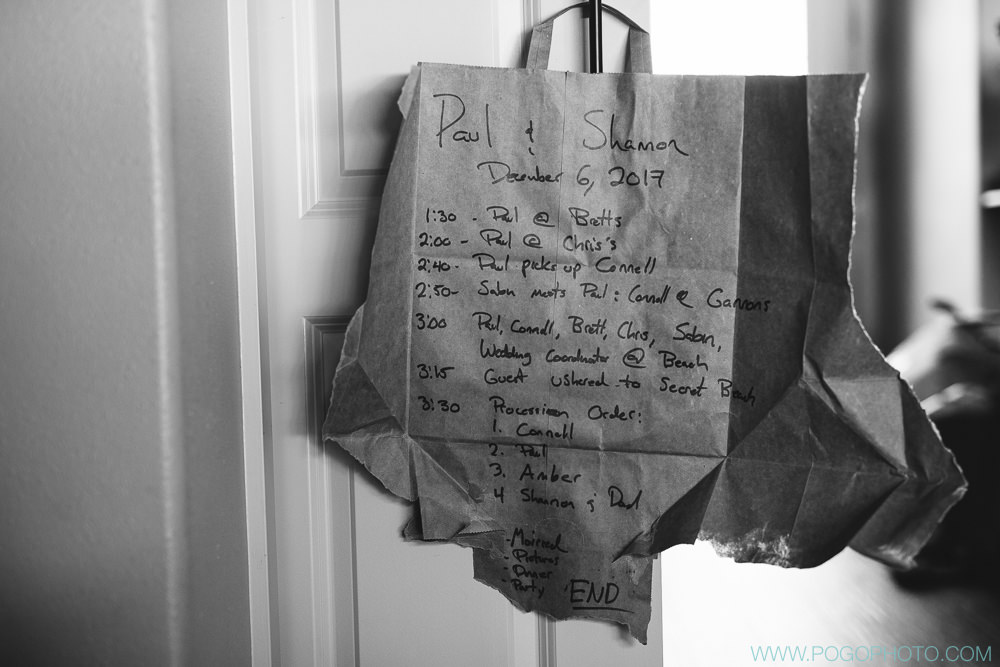 Paul & Shannon
December 6, 2017
1:30 - Paul @ Bretts
2:00 - Paul @ Chris's
2:40 - Paul picks up Connell
2:50 - Sabon meets Paul & Connell @ Gannons
3:00 Paul, Connell, Brett, Chris, Sabon,
Wedding Coordinator @ Beach
3:15 Guest ushered to Secret Beach
3:30 Procession Order:
1. Connell
2. Paul
3. Amber
4 Shannon & Dad
- Married
- Pictures
- Dinner
- Party END
WWW.POGOPHOTO.COM